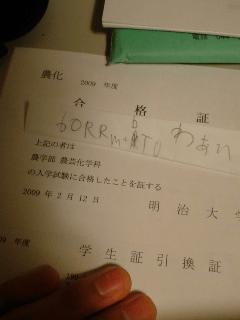 農化 2009 年度
合格証
わぁい
上記の者は
農学部 農芸化学科
の入学試験に合格したことを証する
2009 年 2 月 12 日 明治大
09 年度
学生証引換証